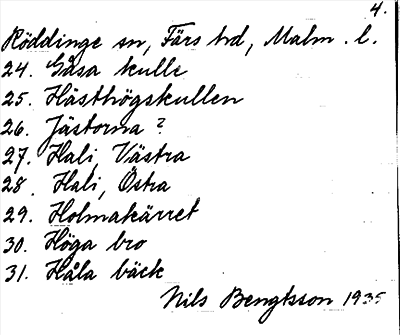 4.
Röddinge sn, Färs hd, Malm. l.
24. Gåsa kulle
25. Hästhögskullen
26. Jästorna?
27. Hali, Västra
28. Hali, Östra
29. Holmakärret
30. Höga bro
31. Håla bäck
Nils Bengtsson 1935